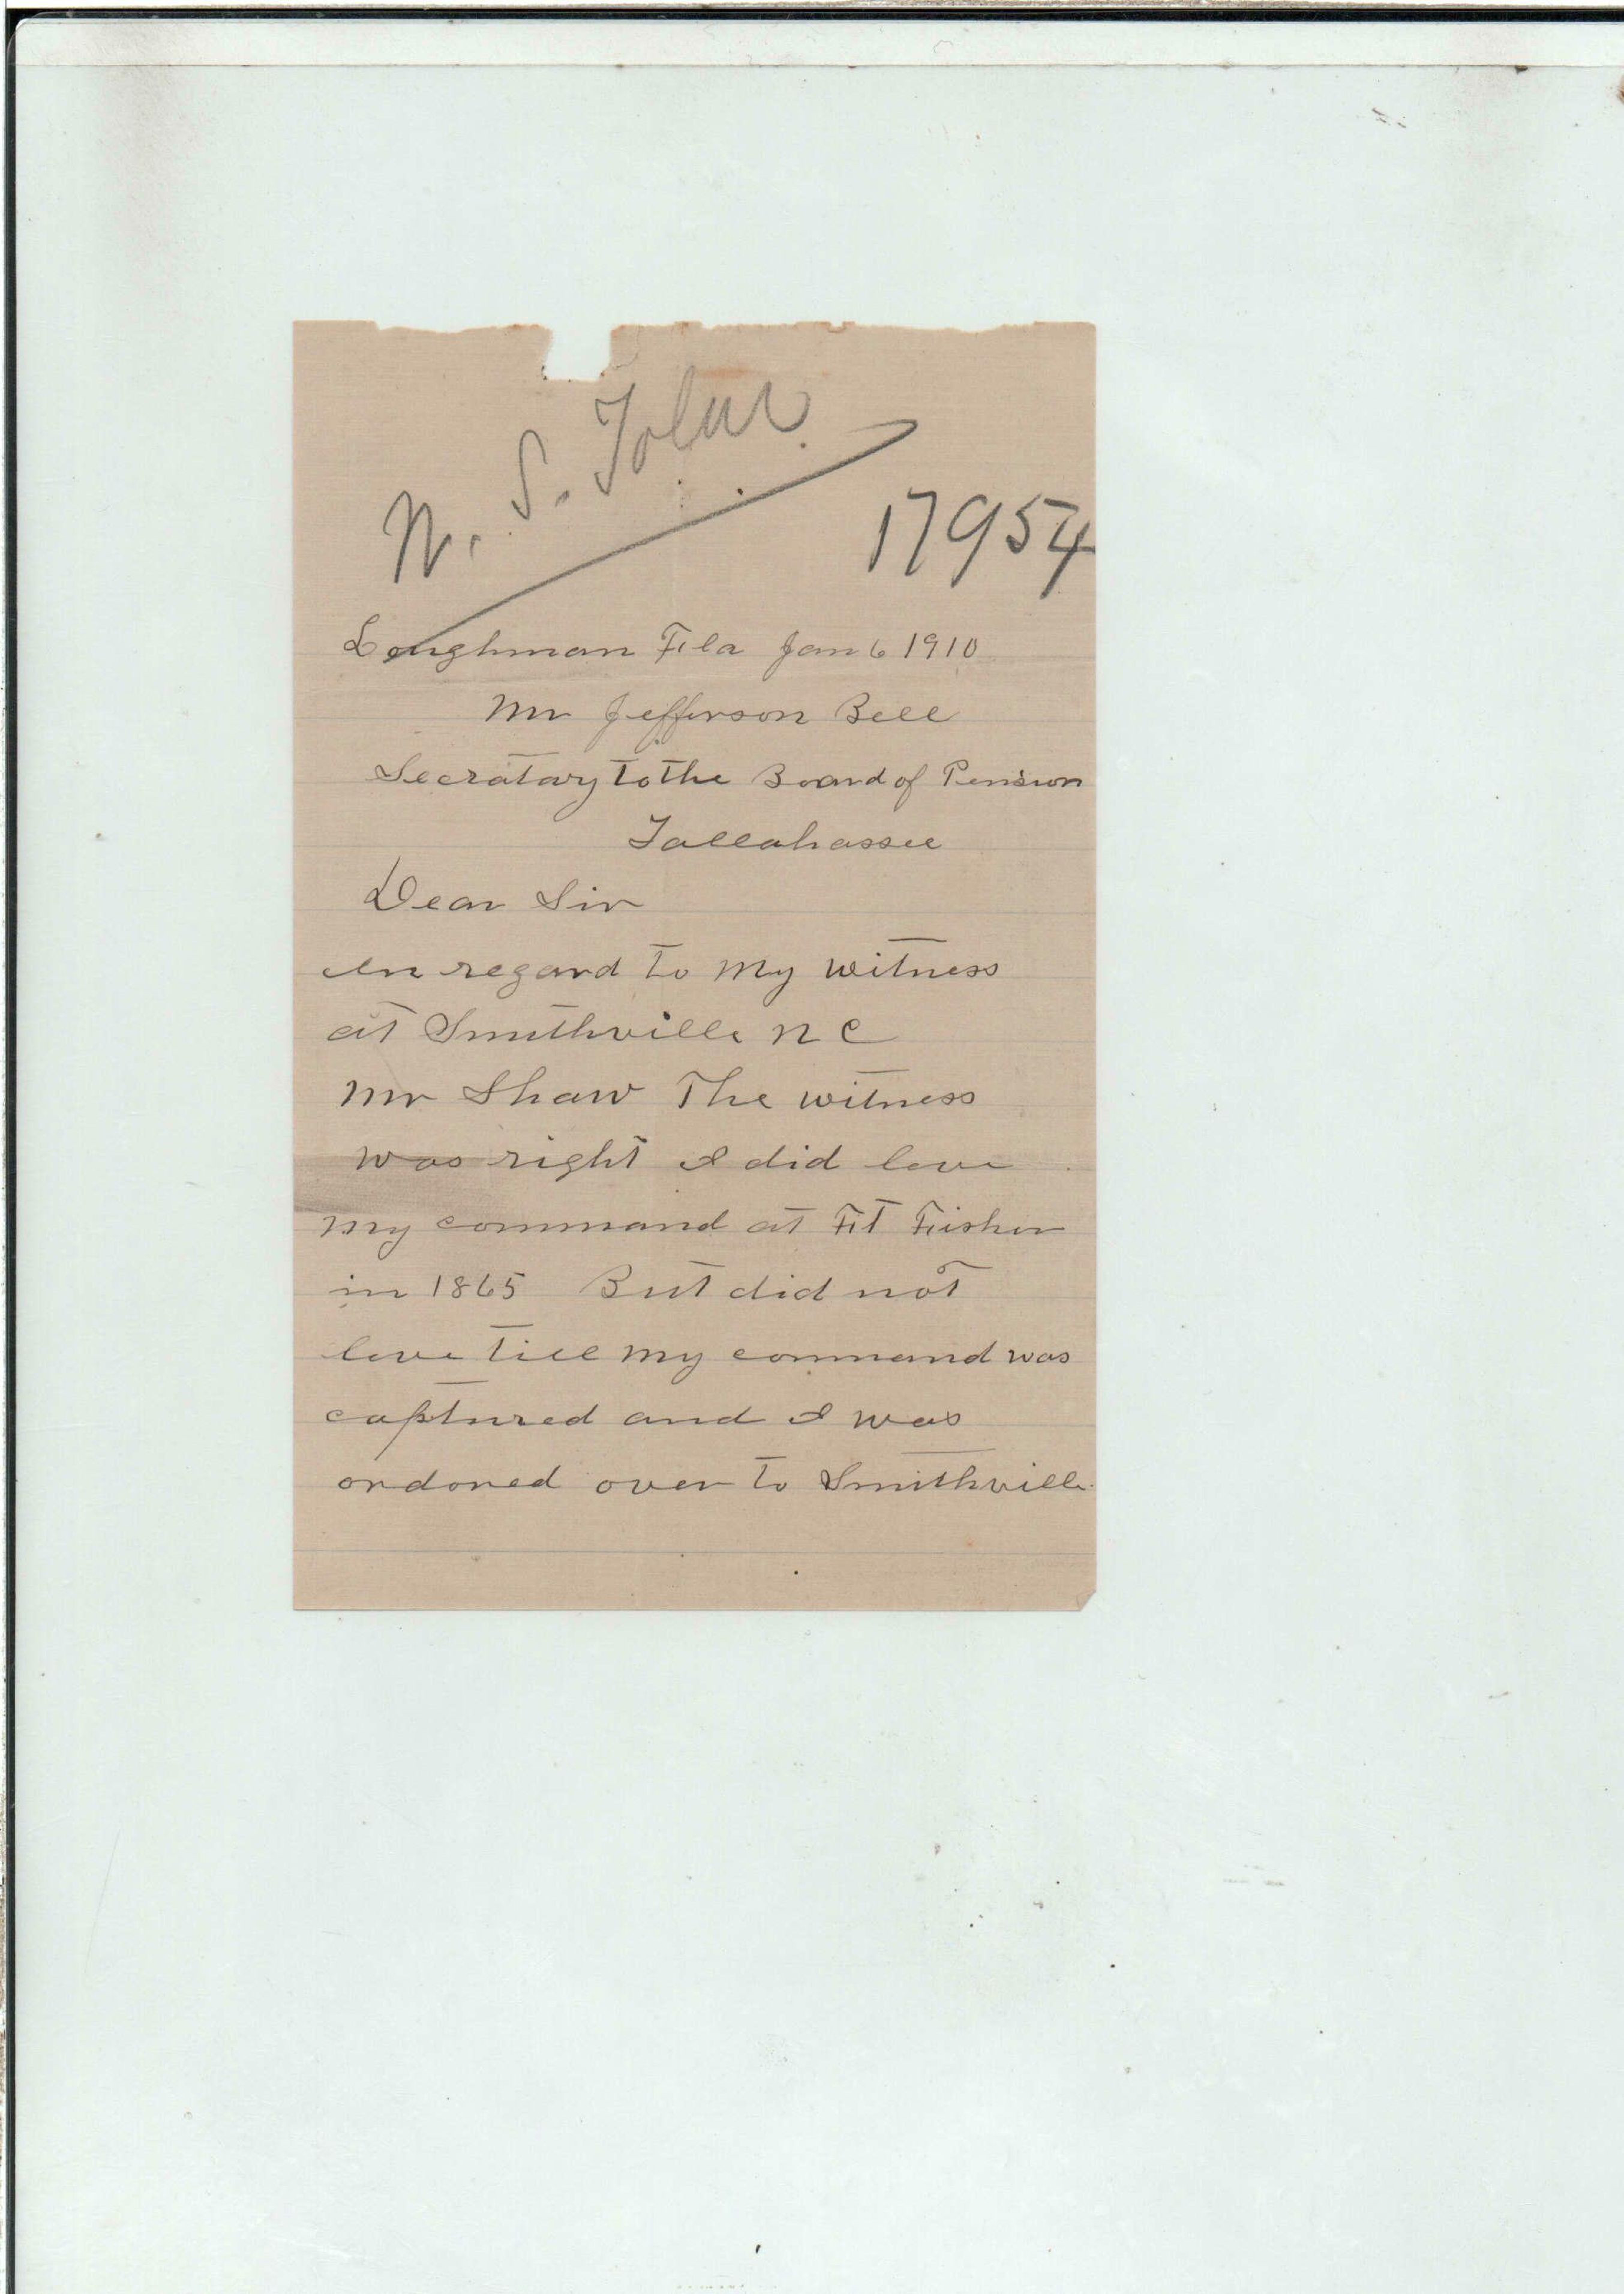 W. S. Tolar
17954
Loughman Fla Jan 6 1910
Mr Jefferson Bell
Secratary to the Board of Pension
Tallahassee
Dear Sir
In regard to my witness
at Smithville N C
Mr Shaw The witness
was right I did leve
my command at Ft Fisher
in 1865 But did not
leve till my command was
captured and I was
ordored over to Smithville